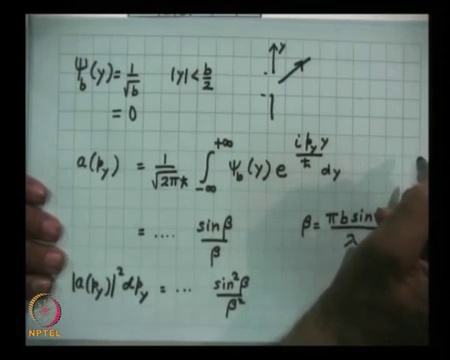 ψ_b(y) = 1/√b |y| < b/2
= 0
y
a(p_y) = 1/√(2πħ) ∫_{-∞}^{+∞} ψ_b(y) e^{i p_y y/ħ} dy
= .... sin β / β
β = πb sin / λ
|a(p_y)|² dp_y = ... sin²β / β²
NPTEL